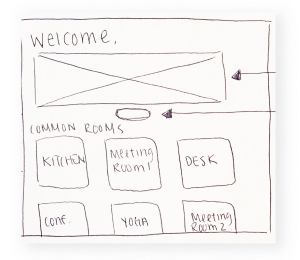 Welcome,
COMMON ROOMS
KITCHEN
Meeting
Room 1
DESK
CONF.
YOGA
Meeting
Room 2